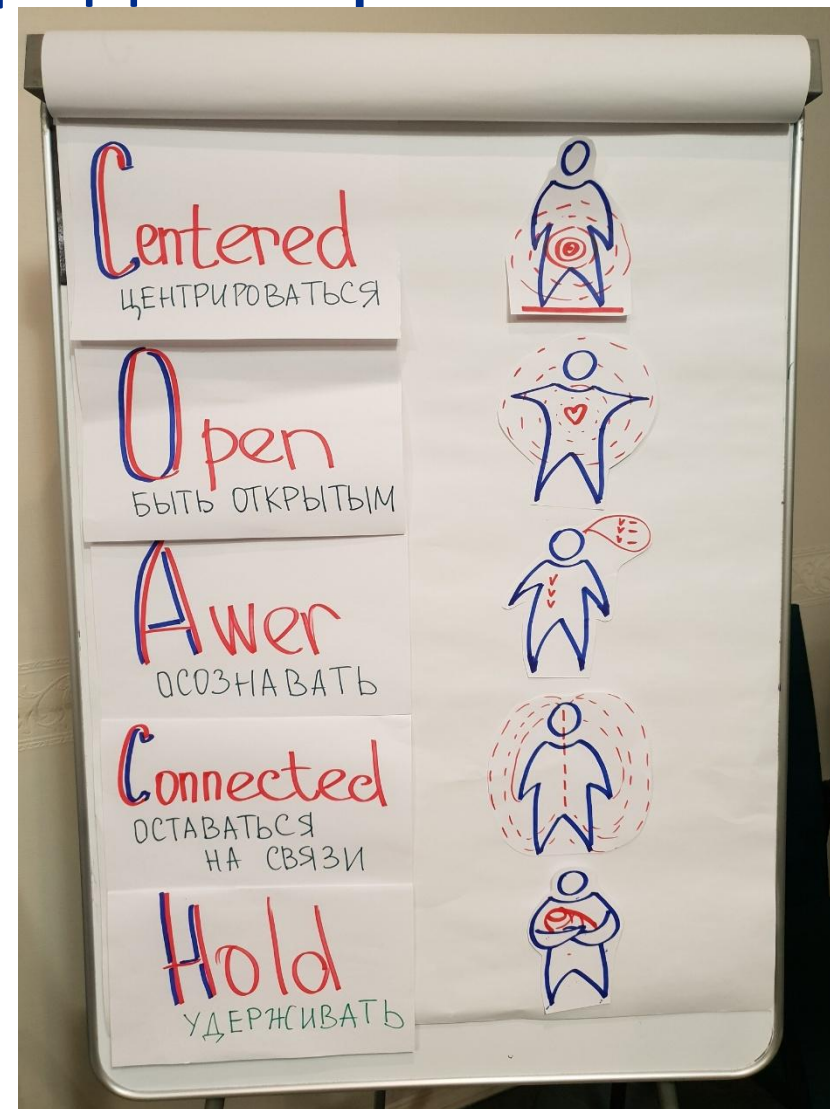 Centered
ЦЕНТРИРОВАТЬСЯ
Open
БЫТЬ ОТКРЫТЫМ
Awer
ОСОЗНАВАТЬ
Connected
ОСТАВАТЬСЯ
НА СВЯЗИ
Hold
УДЕРЖИВАТЬ